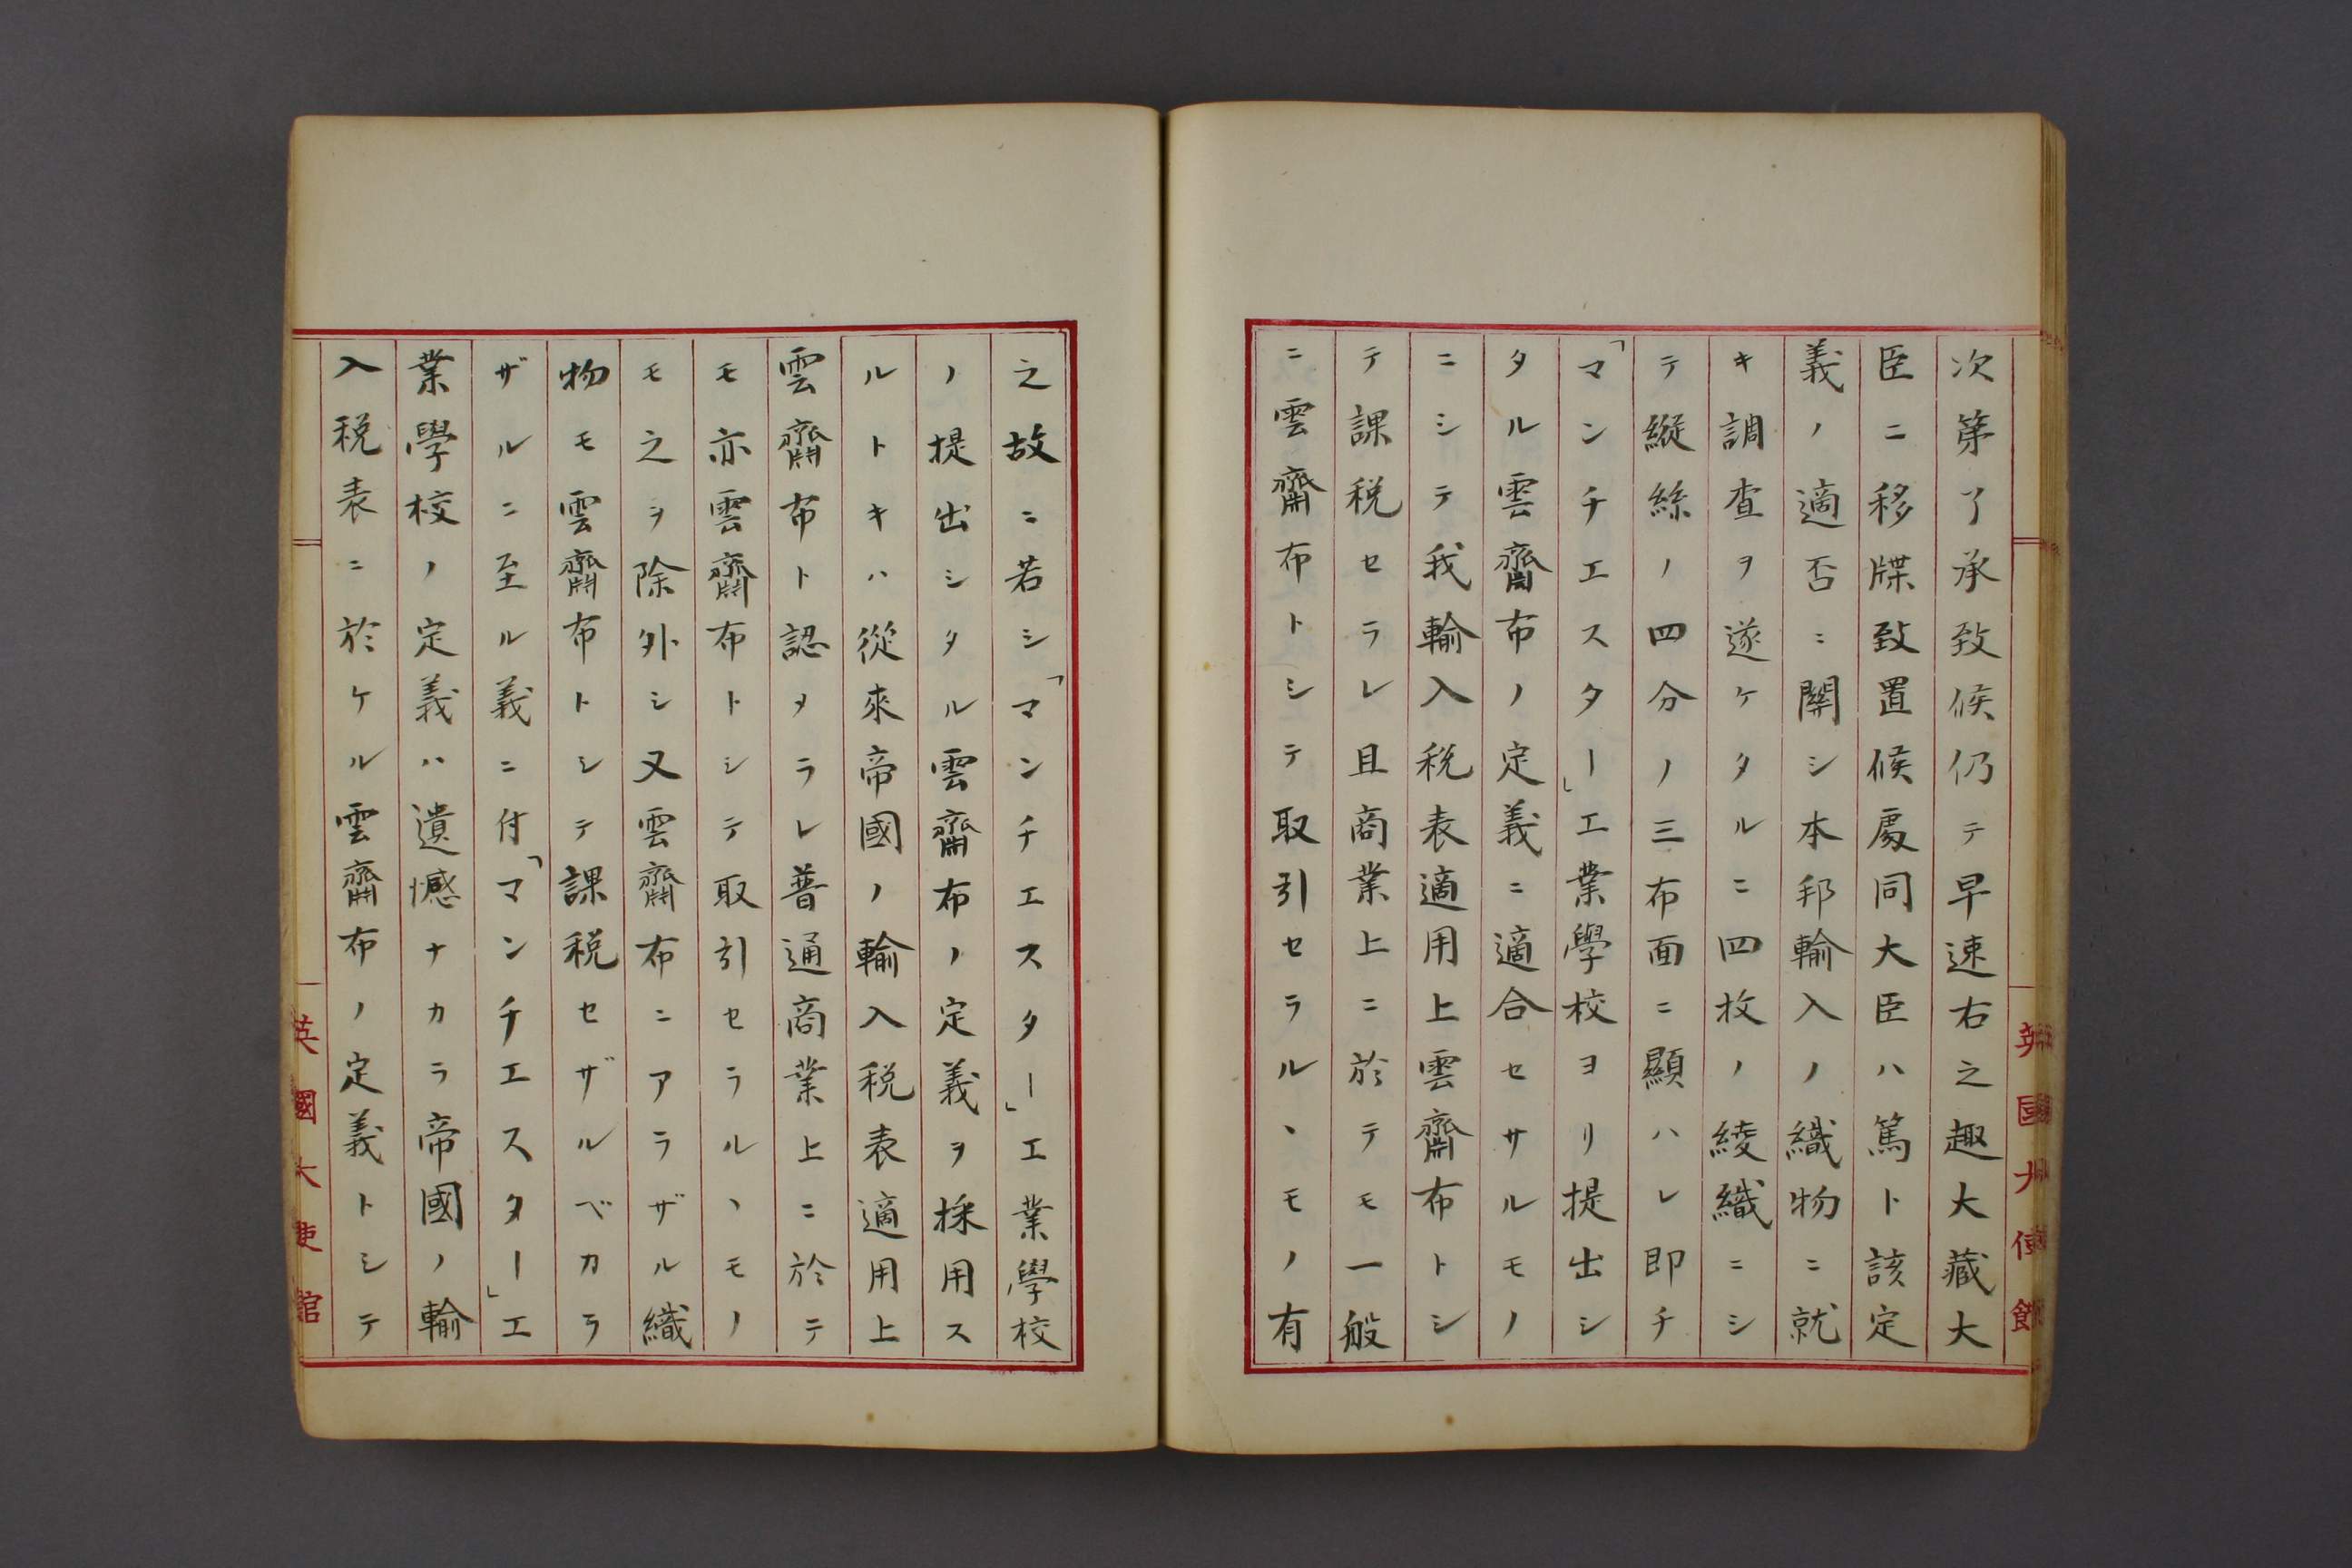 次第了承致候仍テ早速右之趣大藏大
臣ニ移牒致置候處同大臣ハ篤ト該定
義ノ適否ニ關シ本邦輸入ノ織物ニ就
キ調査ヲ遂ケタルニ四枚ノ綾織ニシ
テ縱絲ノ四分ノ三布面ニ顯ハレ即チ
「マンチエスター」工業學校ヨリ提出シ
タル雲齋布ノ定義ニ適合セサルモノ
ニシテ我輸入税表適用上雲齋布トシ
テ課税セラレ且商業上ニ於テモ一般
ニ雲齋布トシテ取引セラルヽモノ有
英國大使館
之故ニ若シ「マンチエスター」工業學校
ノ提出シタル雲齋布ノ定義ヲ採用ス
ルトキハ從來帝國ノ輸入税表適用上
雲齋布ト認メラレ普通商業上ニ於テ
モ亦雲齋布トシテ取引セラルヽモノ
モ之ヲ除外シ又雲齋布ニアラザル織
物モ雲齋布トシテ課税セザルベカラ
ザルニ至ル義ニ付「マンチエスター」工
業學校ノ定義ハ遺憾ナカラ帝國ノ輸
入税表ニ於ケル雲齋布ノ定義トシテ
英國大使館